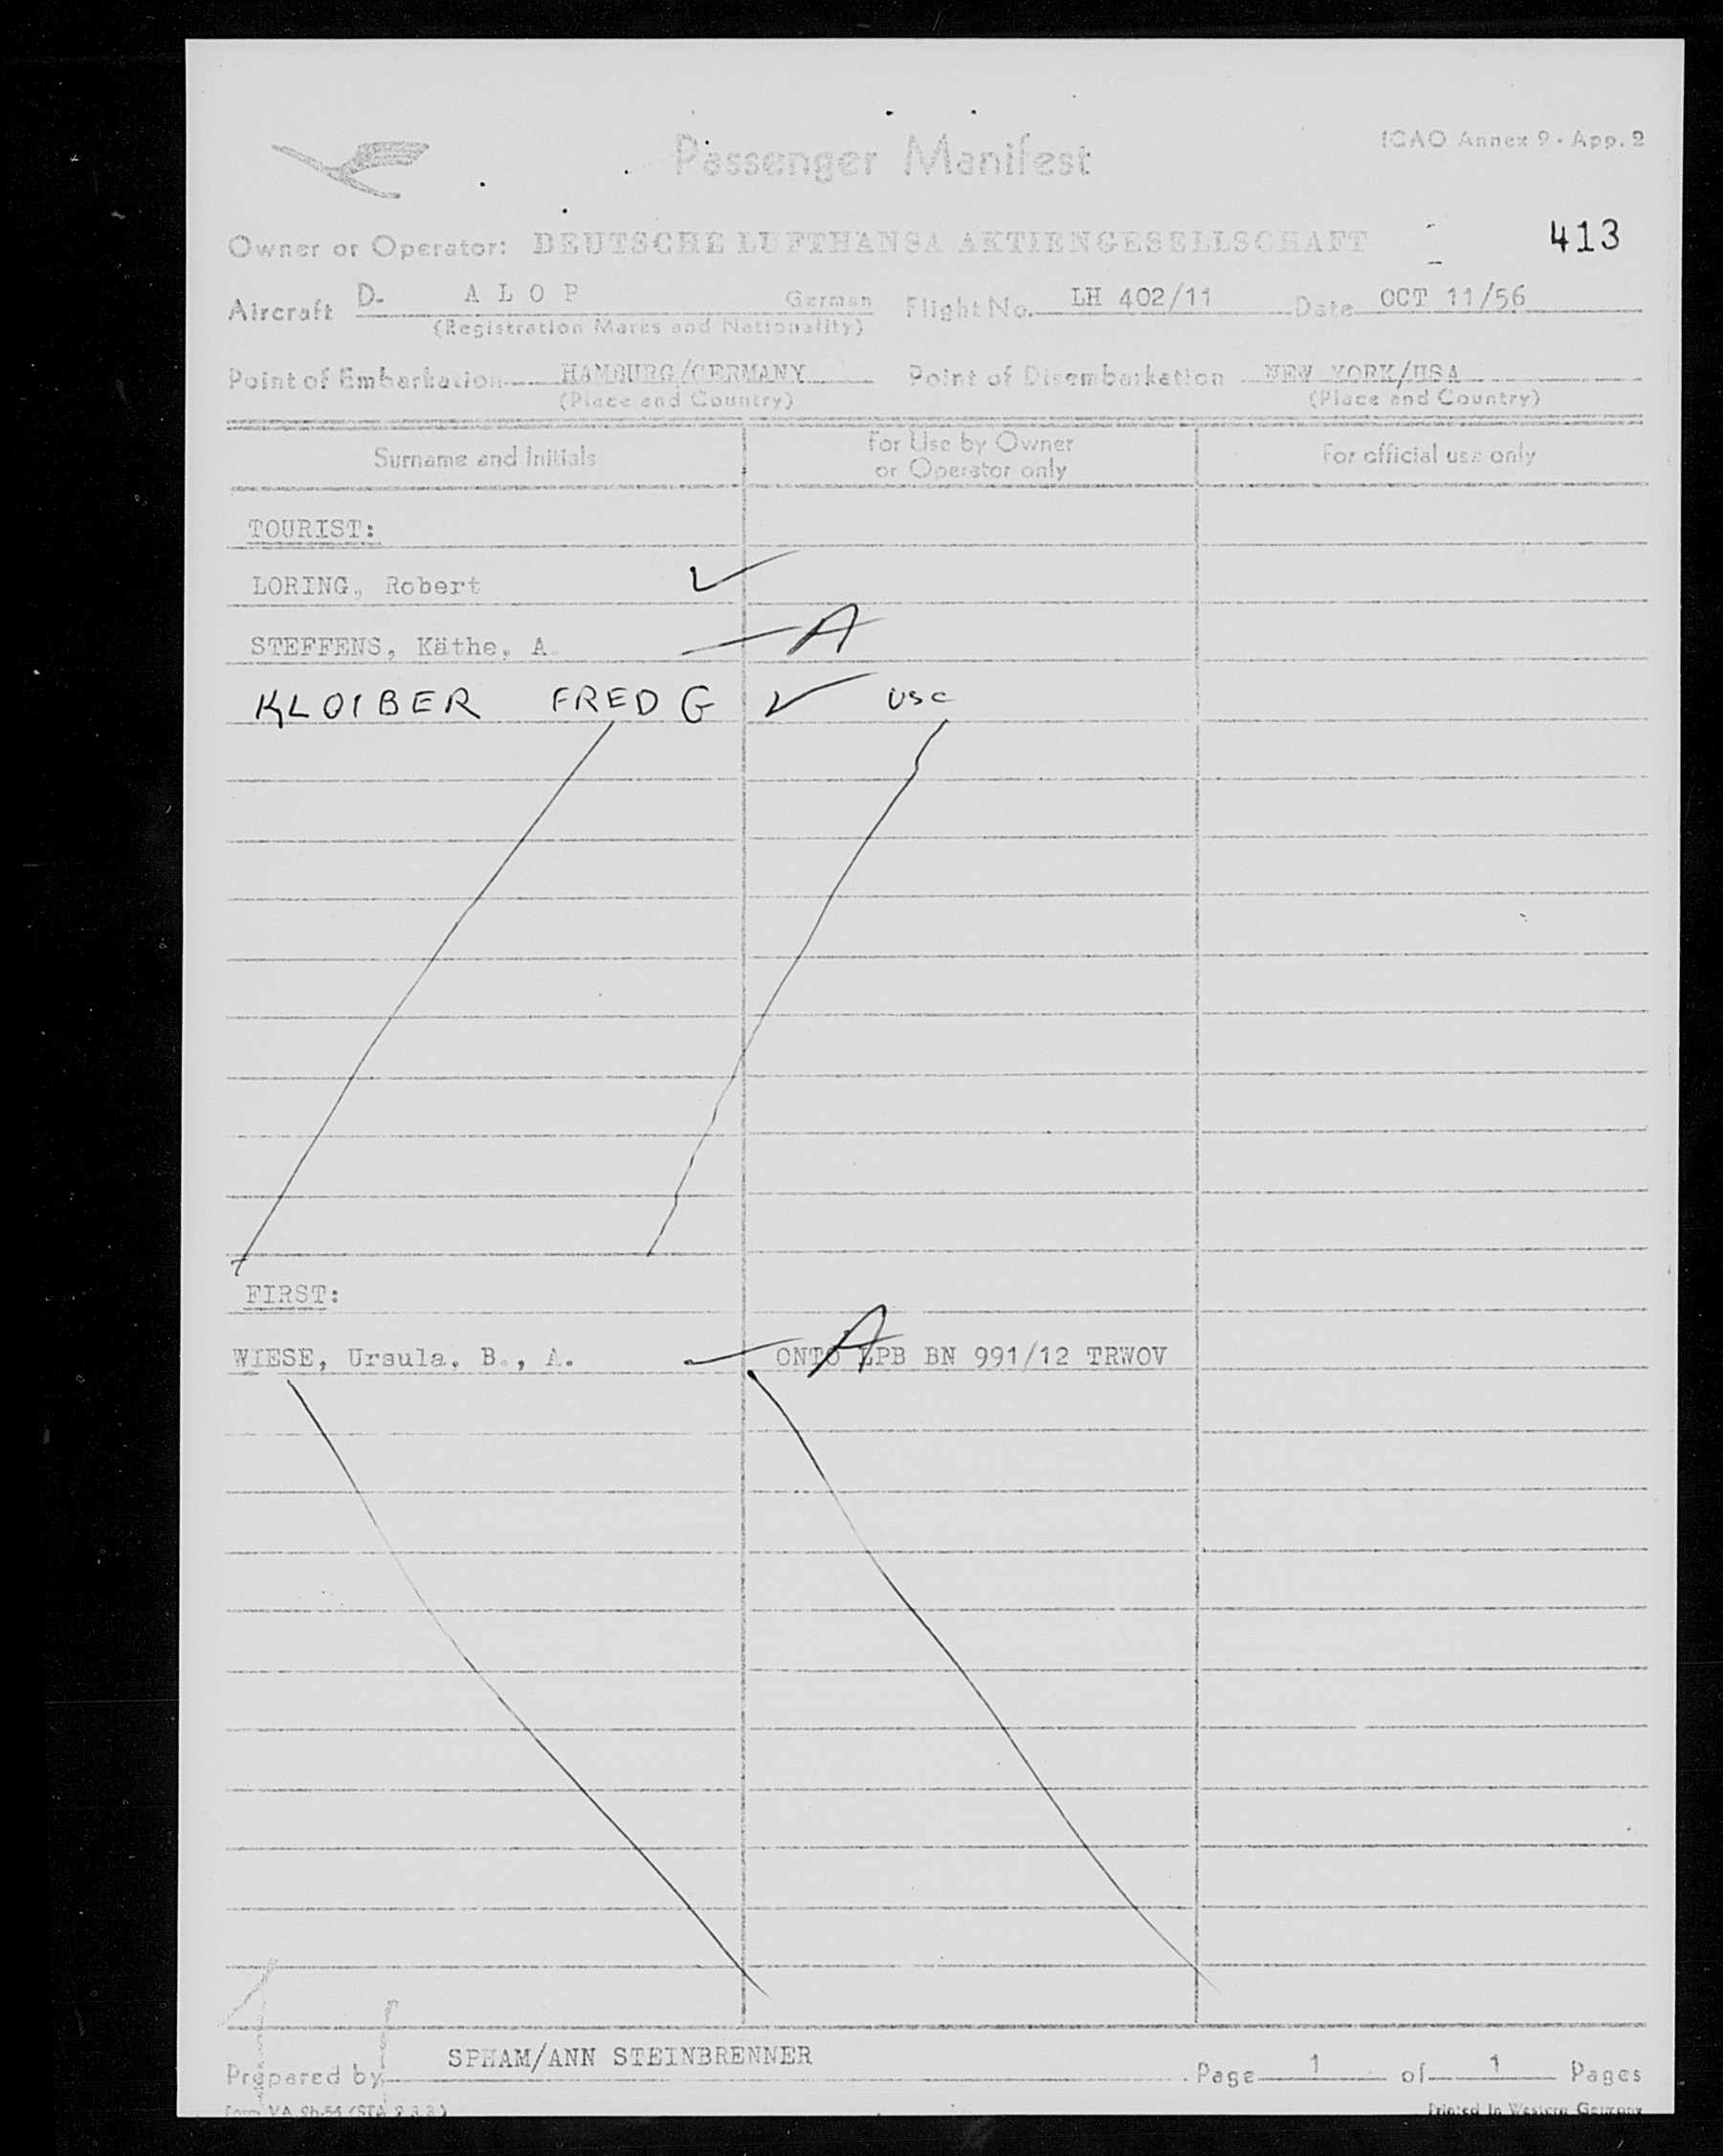 Passenger Manifest
ICAO Annex 9 - App. 2
Owner or Operator: DEUTSCHE LUFTHANSA AKTIENGESELLSCHAFT
413
Aircraft D- ALOP German Flight No. LH 402/11 Date OCT 11/56
(Registration Marks and Nationality)
Point of Embarkation HAMBURG/GERMANY Point of Disembarkation NEW YORK/USA
(Place and Country) (Place and Country)
Surname and Initials
For Use by Owner
or Operator only
For official use only
TOURIST:
LORING, Robert ✓
STEFFENS, Käthe, A. A
KLOIBER FRED G ✓ USC
FIRST:
WIESE, Ursula, B., A. A ONTO EPB BN 991/12 TRWOV
SPHAM/ANN STEINBRENNER
Prepared by Page 1 of 1 Pages
Printed in Western Germany